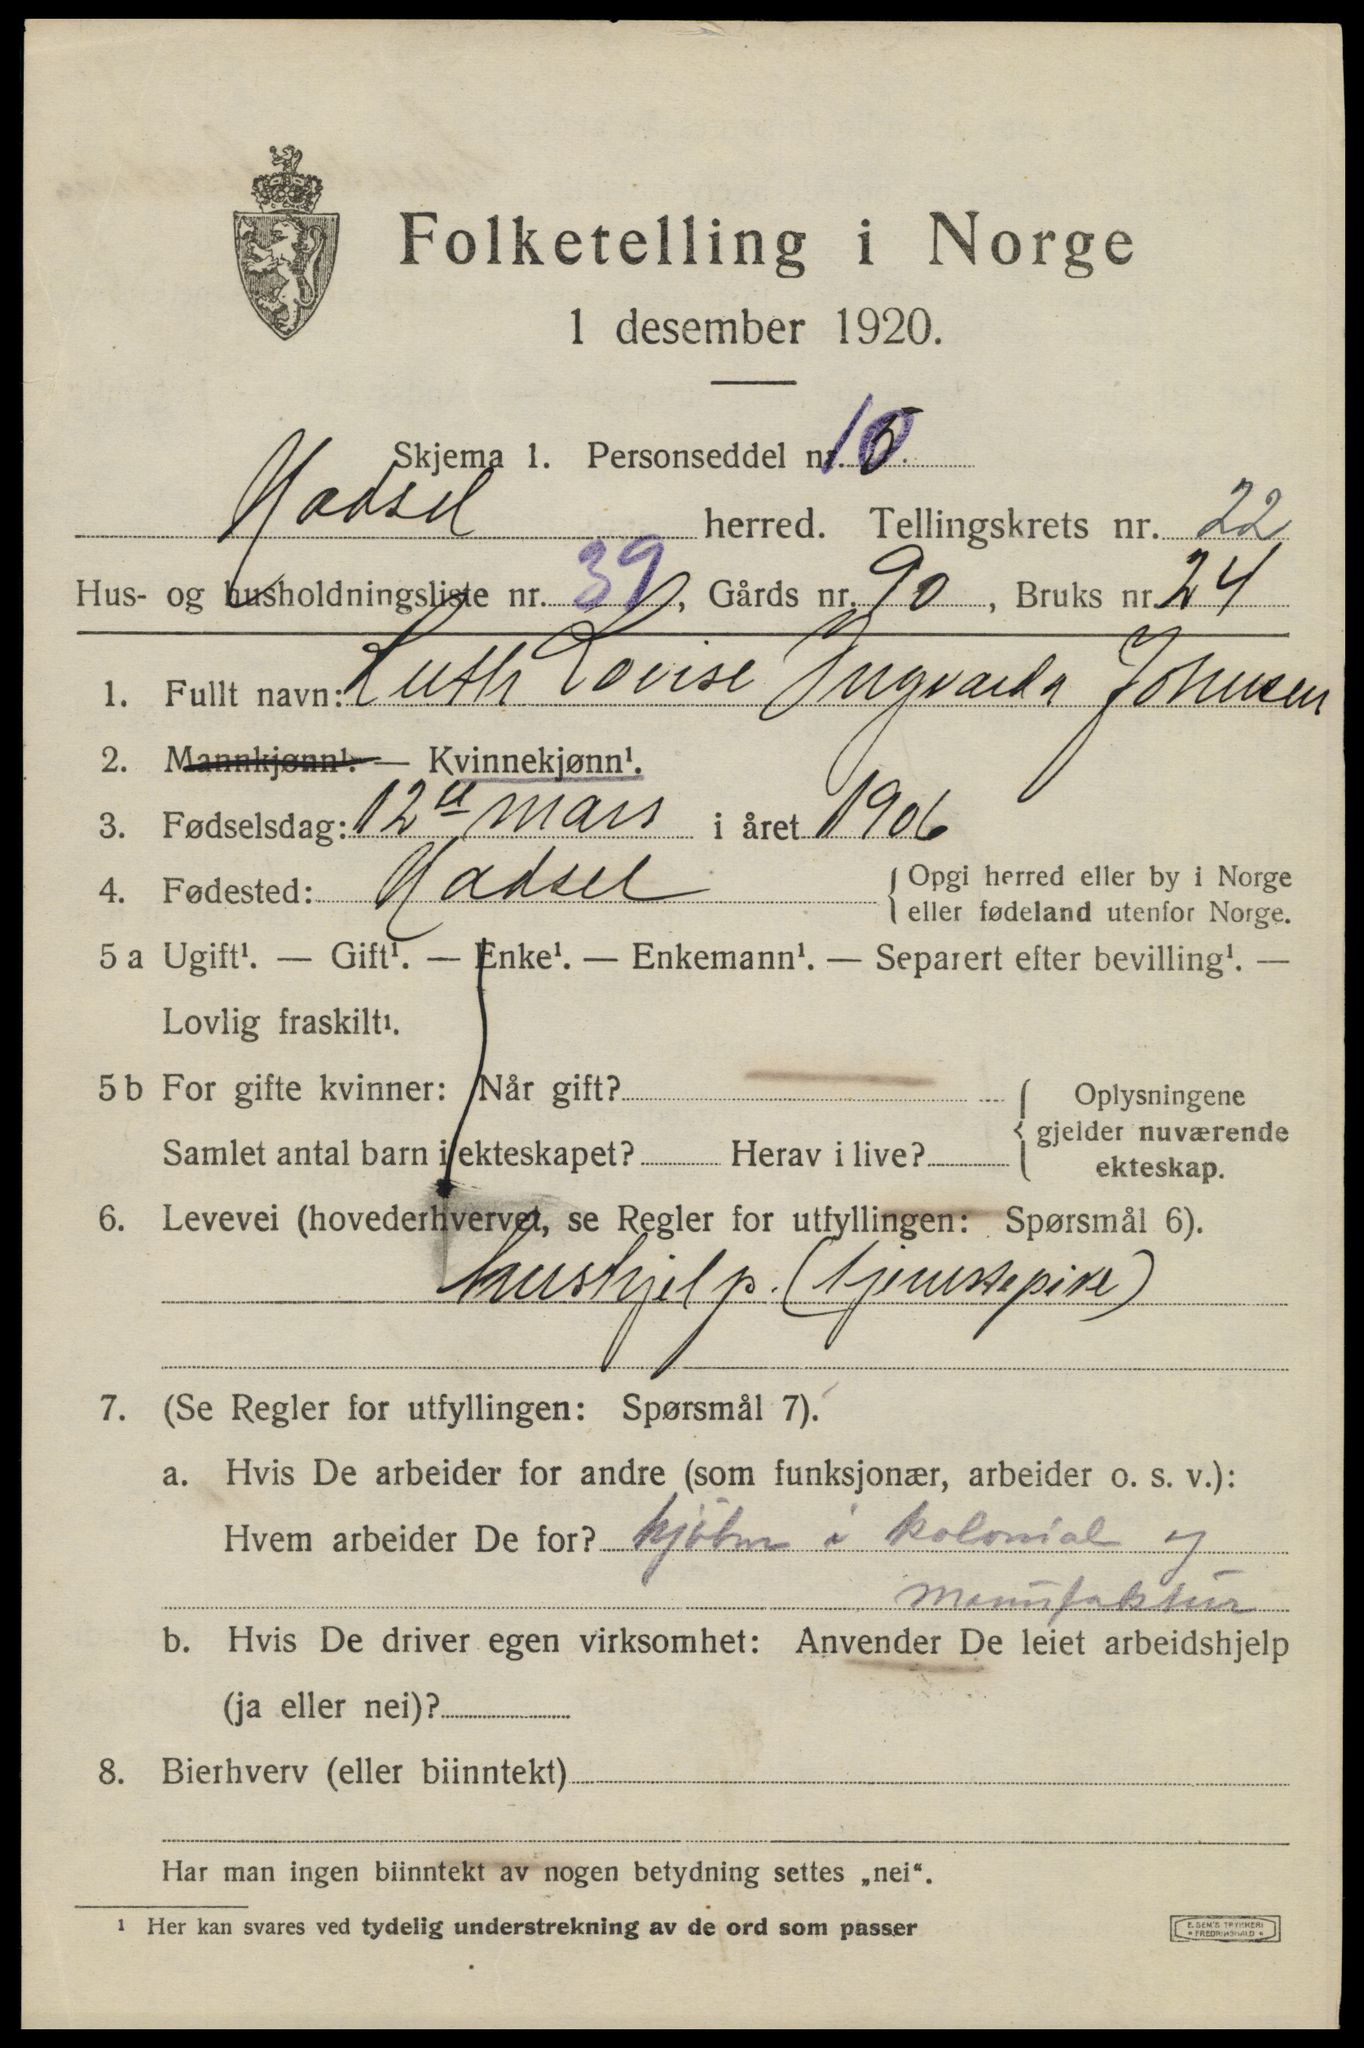 Folketelling i Norge
1 desember 1920.
Skjema 1. Personseddel nr. 10
Hadsel herred. Tellingskrets nr. 22
Hus- og husholdningsliste nr. 39, Gårds nr. 90, Bruks nr. 24
1. Fullt navn: Ruth Lovise Ingvarda Johnsen
2. Mannkjønn¹. — Kvinnekjønn¹.
3. Fødselsdag: 12te mars i året 1906
4. Fødested: Hadsel {Opgi herred eller by i Norge
eller fødeland utenfor Norge.
5 a Ugift¹. — Gift¹. — Enke¹. — Enkemann¹. — Separert efter bevilling¹. —
Lovlig fraskilt¹.
5 b For gifte kvinner: Når gift? {Oplysningene
gjelder nuværende
ekteskap.
Samlet antal barn i ekteskapet? Herav i live?
6. Levevei (hovederhvervet, se Regler for utfyllingen: Spørsmål 6).
hushjelp. (tjenestepike)
7. (Se Regler for utfyllingen: Spørsmål 7).
a. Hvis De arbeider for andre (som funksjonær, arbeider o. s. v.):
Hvem arbeider De for? kjøbm i kolonial og
manufaktur
b. Hvis De driver egen virksomhet: Anvender De leiet arbeidshjelp
(ja eller nei)?
8. Bierhverv (eller biinntekt)
Har man ingen biinntekt av nogen betydning settes „nei“.
¹ Her kan svares ved tydelig understrekning av de ord som passer
E. SEM'S TRYKKERI
* FREDRIKSHALD *